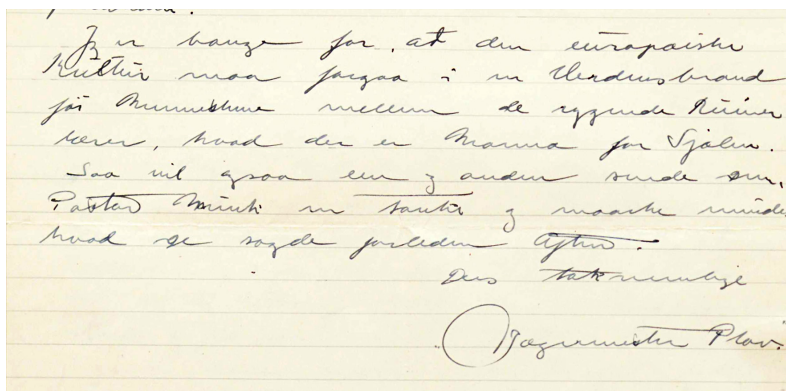 Jeg er bange for, at den europæiske
Kultur maa forgaa i en Verdensbrand
før Menneskene mellem de rygende Ruiner
lærer, hvad der er Manna for Sjælen.
Saa vil ogsaa een og anden sende Dem,
Pastor Munk en Tanke og maaske mindes
hvad De sagde forleden Aften.
Deres taknemlige
Jægermester Plov.